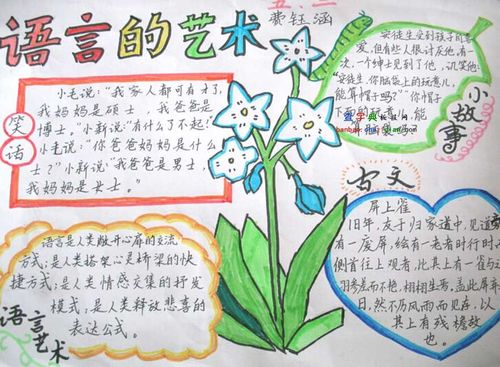 语言的艺术
五.二
费钰涵
笑话
小毛说:“我家人都可有才了,
我妈妈是硕士,我爸爸是
博士。”小新说:“有什么了不起!”
小毛说:“你爸爸妈妈是什么
士?”小新说:“我爸爸是男士,
我妈妈是女士。”
小故事
安徒生受到孩子的喜
爱,但有些人很讨厌他,有一
次,一个绅士见到了他,讥笑他:
“安徒生,你脑袋上的玩意儿,
能算帽子吗?”“你帽子
能
语言艺术
语言是人类敞开心扉的交流
方式;是人类搭架心灵桥梁的快
捷方式;是人类情感交集的抒发
模式,是人类释放悲喜的
表达公式。
古文
屏上雀
旧年,友于归家道中,见道旁
有一废屏,绘有一老者时行时
侧首往上观者,比其上有一雀与之
羽身显而不艳,栩栩生焉,盖此屏
日,然不历风雨而见存,以
其上有残檐故
也。